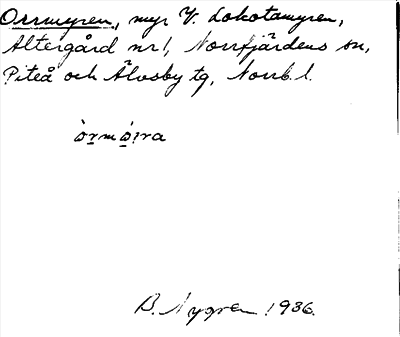 Orrmyren, myr V. Lokotamyren,
Altergård nr 1, Norrfjärdens sn,
Piteå och Älvsby tg, Norrb. l.
B. Nygren 1936.